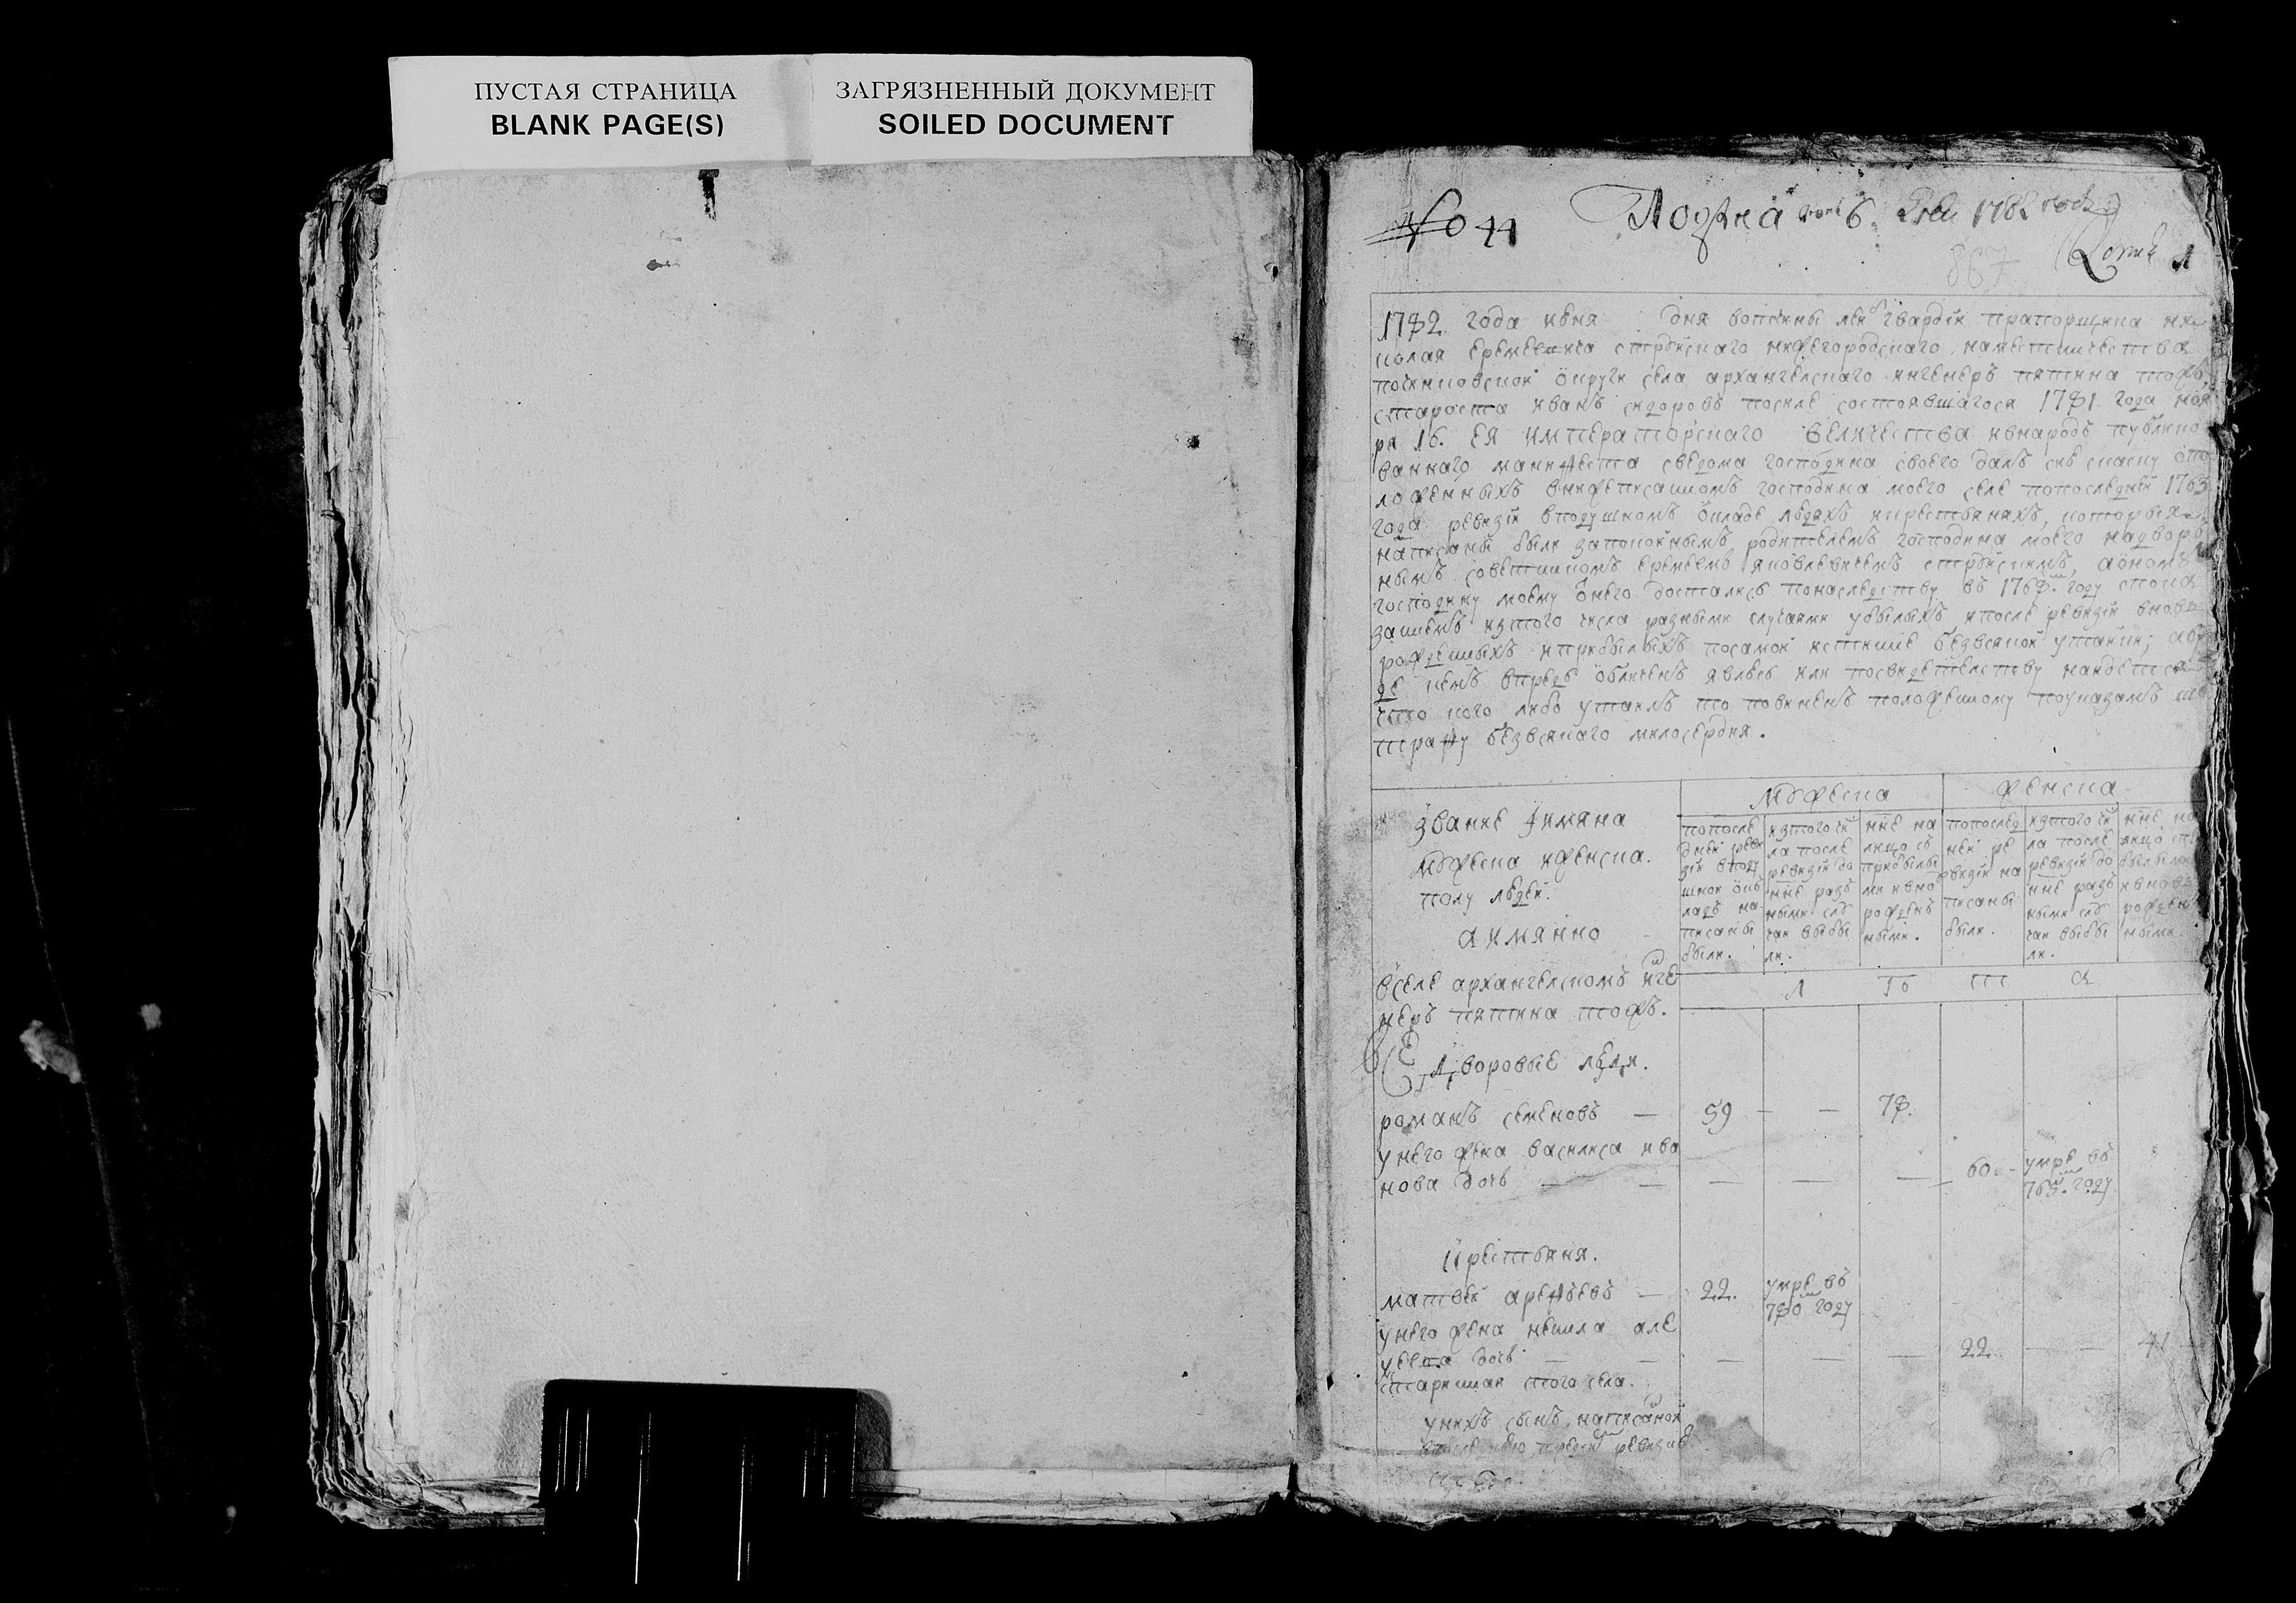 ПУСТАЯ СТРАНИЦА
BLANK PAGE(S)
ЗАГРЯЗНЕННЫЙ ДОКУМЕНТ
SOILED DOCUMENT
№ 44
Подана 6. 1782
1782 года июня дня вотчины лейб гвардии прапорщика ни
колая еремеевича струйскаго нижегородскаго наместничества
починковской округи села архангелскаго ингенеръ пятина тожъ
староста иванъ сидоровъ посиле состоявшагося 1781 года нояб
ря 16. ея императорскаго величества ивнародъ публико
ваннаго манифеста сведома господина своего далъ сию скаску опо
ложенныхъ внижеписанномъ господина моего селе попоследней 1763
года ревизии вподушномъ окладе людяхъ икрестьянахъ, которыя
написаны были запокойнымъ родителемъ господина моего надвор
нымъ советникомъ еремеемъ яковлевичемъ струйскимъ, аономъ
господину моему онего досталися понаследству въ 1768м году спока
заниемъ изтого числа разными случаями убылыхъ ипосле ревизии вновь
рожденныхъ иприбылыхъ посамой истинне безвсякой утайки; абу
де кемъ впредь обличенъ явлюсь или посвидетелству найдется
что кого либо утаилъ то повиненъ положенному поуказамъ ш
трафу безвсякаго милосердия.
звание иимяна
мужеска иженска
полу людей.
а имянно
мужеска
попосле
дней реви
зии вподу
шной ок
ладъ на
писаны
были.
изтого чис
ла после
ревизии до
ныне разъ
ными слу
чаи выбы
ли.
ныне на
лицо съ
прибылы
ми ивно
рожденъ
ными.
женска
попослед
ней ре
ревизии на
писаны
были.
изтого чис
ла после
ревизии до
ныне разъ
ными слу
чаи выбы
ли.
ныне на
лицо спр
былыми
ивновь
рожден
ными.
вселе архангелскомъ инге
неръ пятина тожъ.
дворовые люди.
романъ семеновъ — 59 — — 78.
унего жена василиса ива
нова дочь — — — — — 60. — умре въ
765м году
крестьяня.
матвей арефьевъ — 22. умре въ
780м году
унего жена ненила але
ксеева дочь — — — — — 22. — — 41
старинная того села.
унихъ сынъ написанной